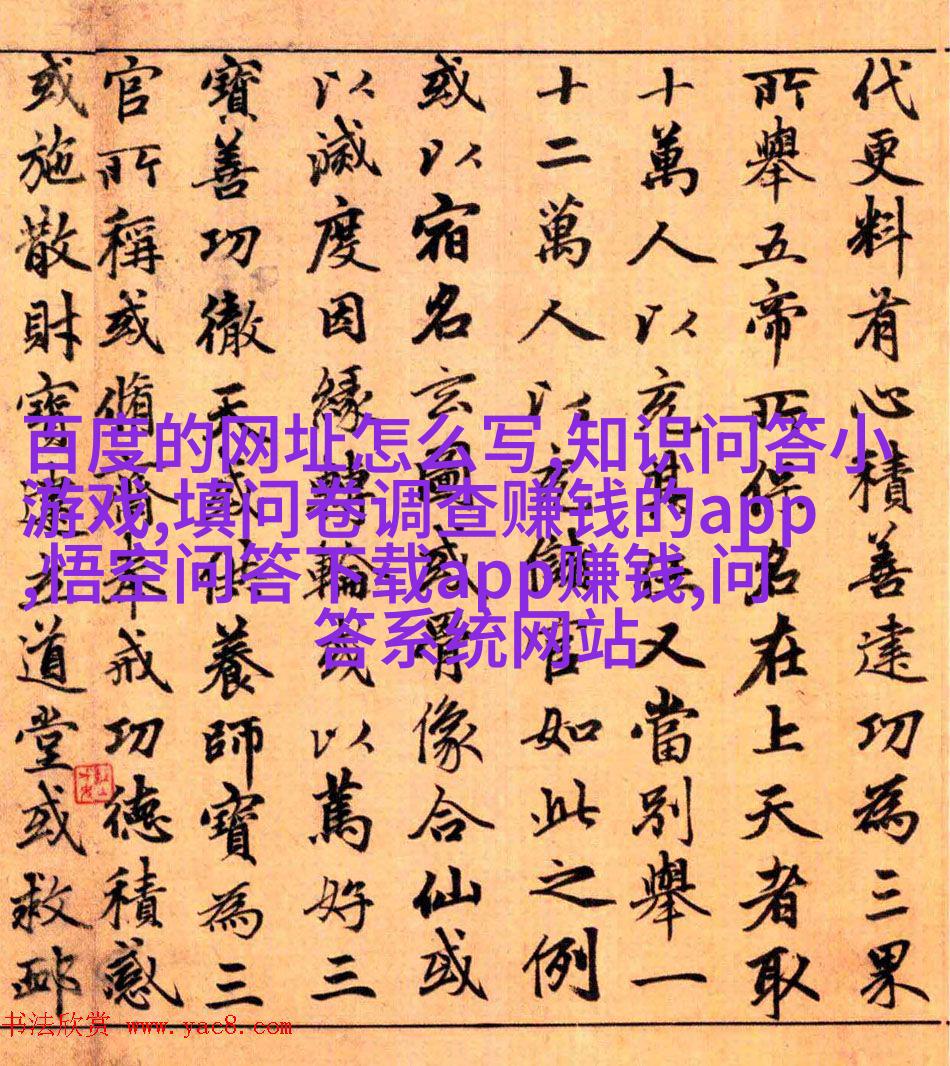 代更料有心積善建功為三果
所舉五帝所保名在上天者取
十萬人以充其任又當別舉一
十二萬人以充官如此之例
或以宿名玄圖或骨像合仙或
以滅度因緣轉輪或以篤好三
寶善功徹天或供養師寶為三
官所稱或脩齋奉戒功德積感
或施散財寶建立道堂或救卹
百度的网址怎么写,知识问答小
游戏,填问卷调查赚钱的app
,悟空问答下载app赚钱,问
答系统网站
书法欣赏 www.yac8.com